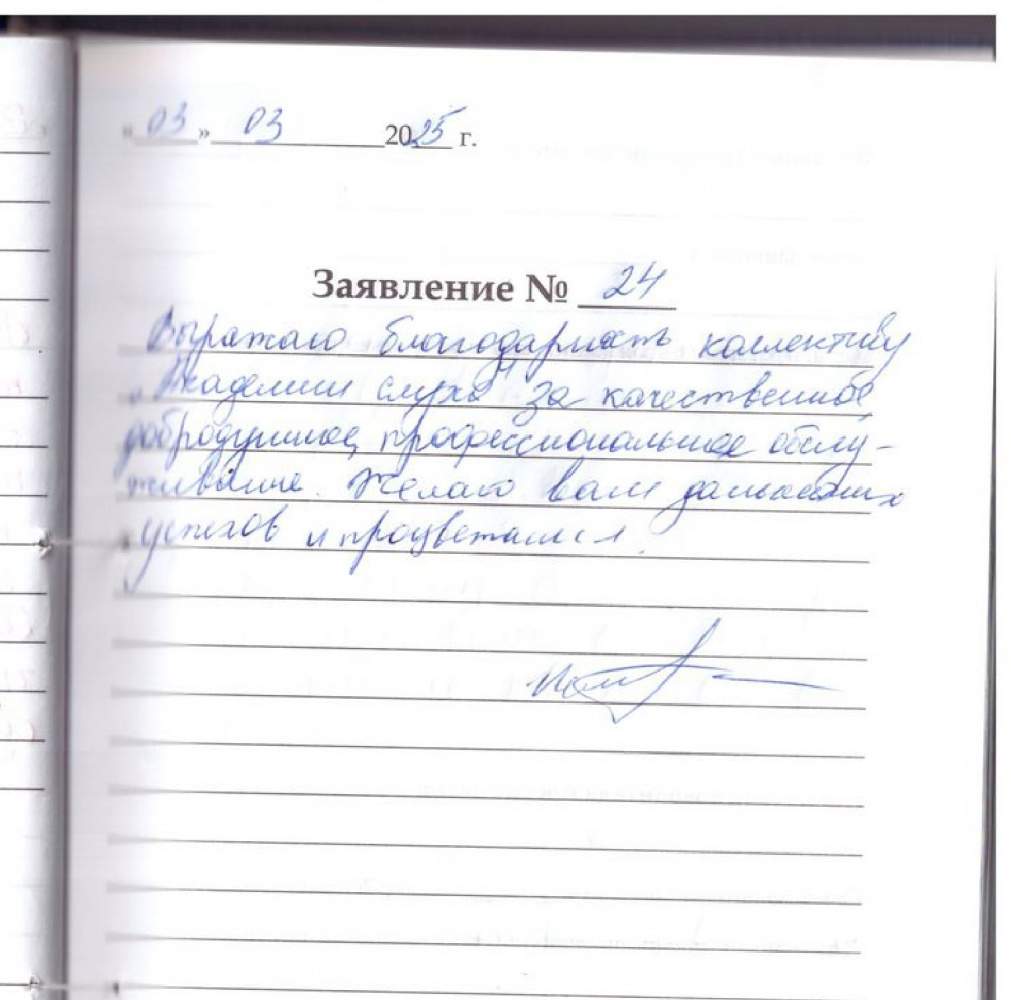 «03» 03 2025 г.
Заявление № 24
Выражаю благодарность коллективу
"Академии слуха" за качественное,
добродушное, профессиональное обслу-
живание. Желаю вам дальнейших
успехов и процветания.